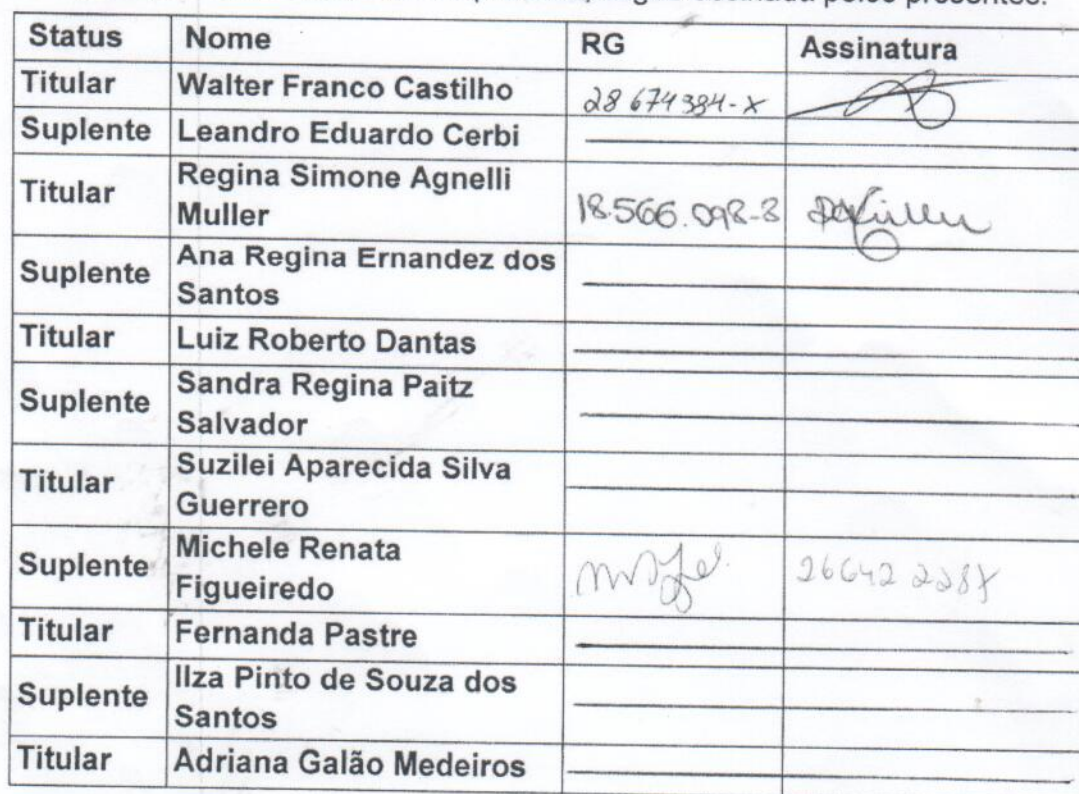 assinada pelos presentes.
Status Nome RG Assinatura
Titular Walter Franco Castilho 28 674 384-X
Suplente Leandro Eduardo Cerbi
Titular Regina Simone Agnelli
Muller 18.566.098-8
Suplente Ana Regina Ernandez dos
Santos
Titular Luiz Roberto Dantas
Suplente Sandra Regina Paitz
Salvador
Titular Suzilei Aparecida Silva
Guerrero
Suplente Michele Renata
Figueiredo 26642 228X
Titular Fernanda Pastre
Suplente Ilza Pinto de Souza dos
Santos
Titular Adriana Galão Medeiros